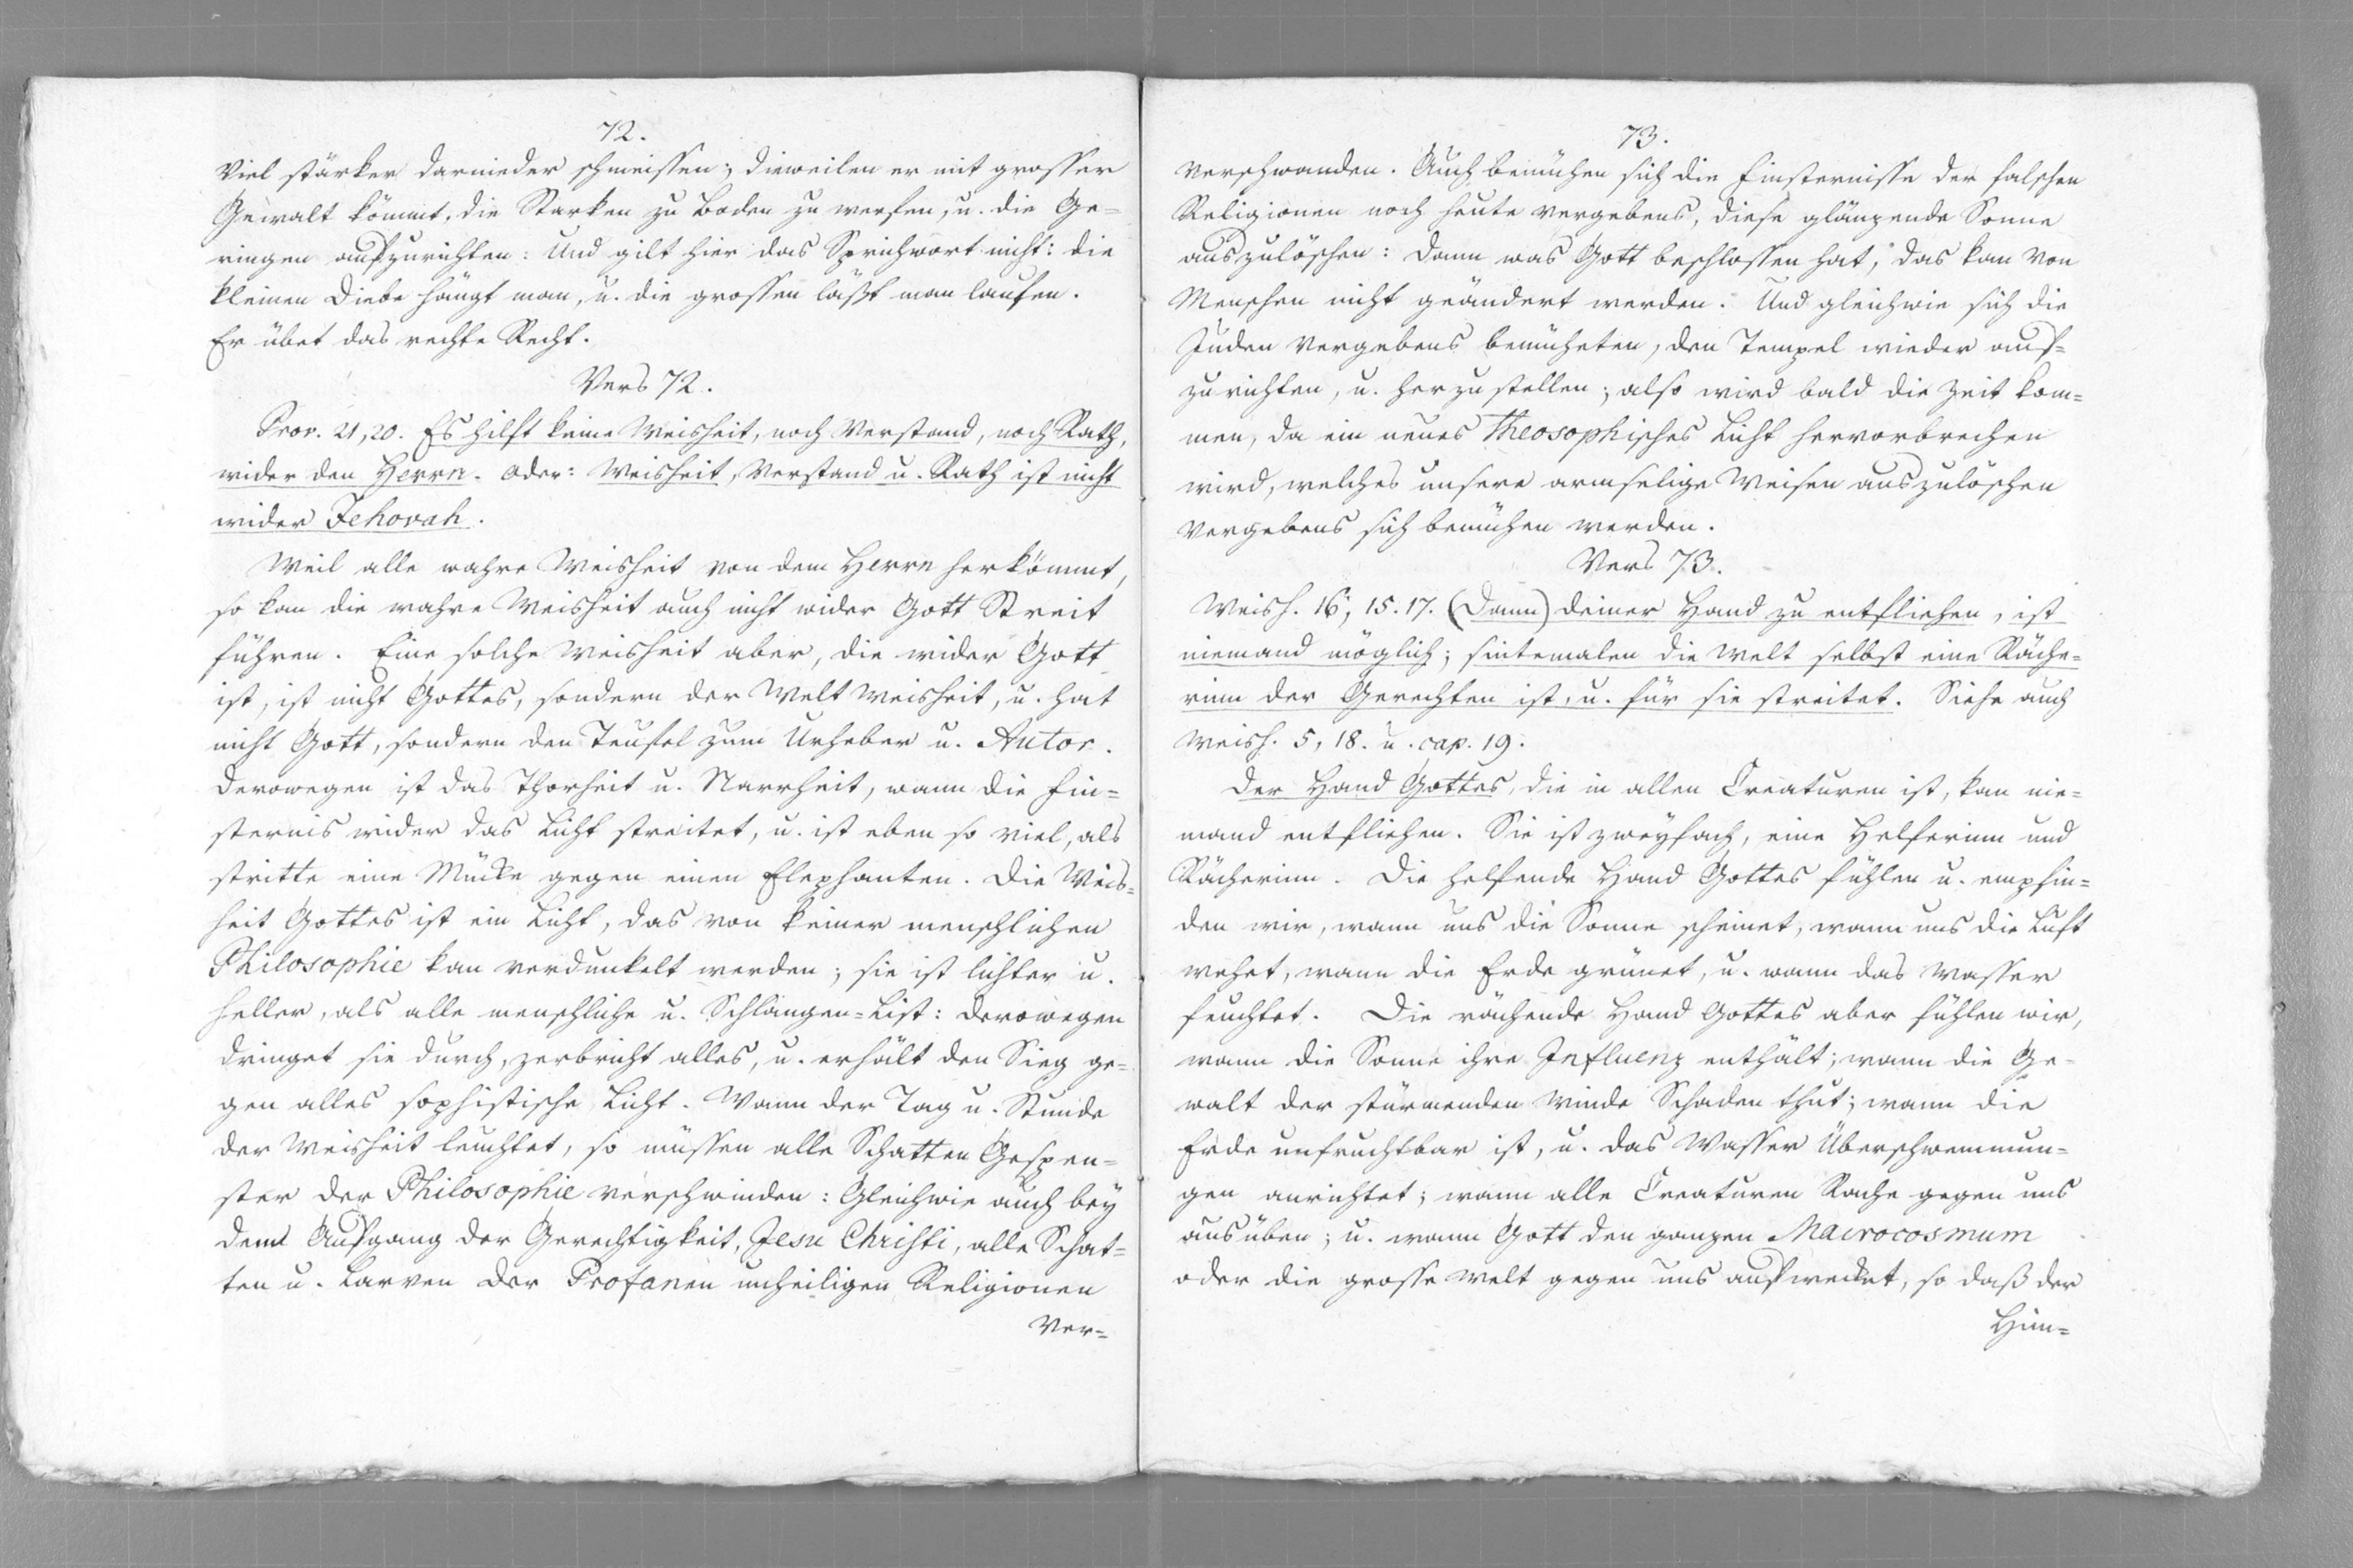 72.
viel stärker darnieder schmeissen; dieweilen er mit grosser
Gewalt kömmt, die Starken zu Boden zu werfen, u. die Ge=
ringen aufzurichten: Und gilt hier das Sprichwort nicht: die
kleinen Diebe hängt man, u. die grossen läßt man laufen.
Er übet das rechte Recht.
Vers 72.
Prov. 21,20. Es hilft keine Weisheit, noch Verstand, noch Rath,
wider den Herrn. Oder: Weisheit, Verstand u. Rath ist nicht
wider Jehovah.
Weil alle wahre Weisheit von dem Herrn herkömmt,
so kan die wahre Weisheit auch nicht wider Gott Streit
führen. Eine solche Weisheit aber, die wider Gott
ist, ist nicht Gottes, sondern der Welt Weisheit, u. hat
nicht Gott, sondern den Teufel zum Urheber u. Autor.
Derowegen ist das Thorheit u. Narrheit, wann die Fin=
sternis wider das Licht streitet, u. ist eben so viel, als
stritte eine Mücke gegen einen Elephanten. Die Weis=
heit Gottes ist ein Licht, das von keiner menschlichen
Philosophie kan verdunkelt werden; sie ist lichter u.
heller, als alle menschliche u. Schlangen=List: Derowegen
dringet sie durch, zerbricht alles, u. erhält den Sieg ge=
gen alles sophistische Licht. Wann der Tag u. Stunde
der Weisheit leuchtet, so müssen alle Schatten Gespen=
ster der Philosophie verschwinden: Gleichwie auch bey
dem Aufgang der Gerechtigkeit, Jesu Christi, alle Schat=
ten u. Larven der Profanen unheiligen Religionen
ver=
73.
verschwanden. Auch bemühen sich die Finsternisse der falschen
Religionen noch heute vergebens, diese glänzende Sonne
auszulöschen: Dann was Gott beschlossen hat, das kan von
Menschen nicht geändert werden. Und gleichwie sich die
Juden vergebens bemüheten, den Tempel wieder auf=
zurichten, u. herzustellen; also wird bald die Zeit kom=
men, da ein neues Theosophisches Licht hervorbrechen
wird, welches unsere armselige Weisen auszulöschen
vergebens sich bemühen werden.
Vers 73.
Weish. 16, 15.17. (Dann) deiner Hand zu entfliehen, ist
niemand möglich; sintemalen die Welt selbst eine Räche=
rinn der Gerechten ist, u. für sie streitet. Siehe auch
Weish. 5, 18. u. cap. 19.
Der Hand Gottes, die in allen Creaturen ist, kan nie=
mand entfliehen. Sie ist zweyfach, eine Helferinn und
Rächerinn. Die helfende Hand Gottes fühlen u. empfin=
den wir, wann uns die Sonne scheinet, wann uns die Luft
wehet, wann die Erde grünet, u. wann das Wasser
feuchtet. Die rächende Hand Gottes aber fühlen wir,
wann die Sonne ihre Influenz enthält; wann die Ge=
walt der stürmenden Winde Schaden thut; wann die
Erde unfruchtbar ist, u. das Wasser Überschwemmun=
gen anrichtet; wann alle Creaturen Rache gegen uns
ausüben; u. wann Gott den ganzen Macrocosmum
oder die grosse Welt gegen uns aufwecket, so daß der
Him=